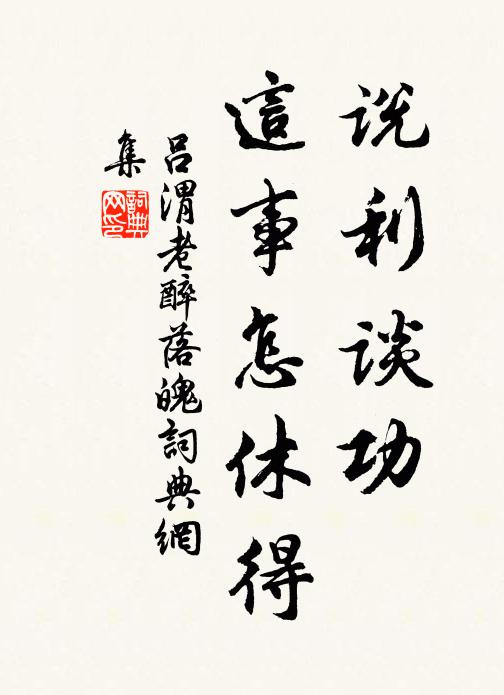 说利谈功
這事怎休得
吕渭老醉落魄詞典網
集
詞典
网印